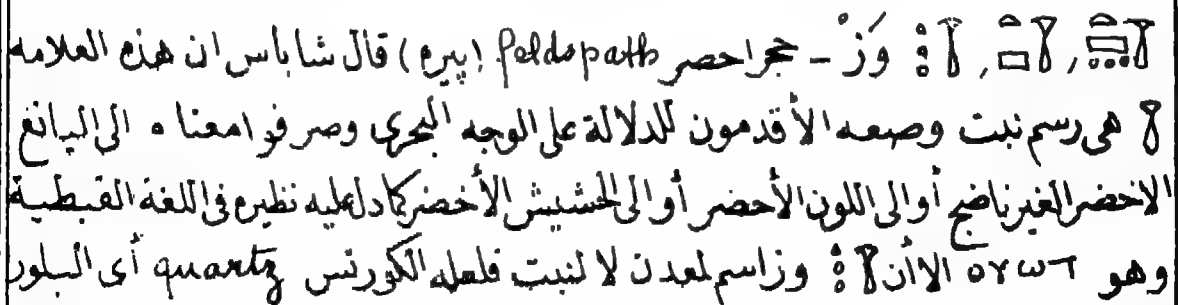 وَزْ - حجر احصر feldspath (پيره) قال شاباس ان هذه العلامه
هى رسم نبت وصعه الأقدمون للدلالة على الوجه البحرى وصرفوا معناه الى اليانع
الاخضر الغير ناضج أو الى اللون الأحضر أو الى الحشيش الأخضر كما دل عليه نظيره فى اللغة القبطية
وهو ⲟⲩⲱⲧ الا أن وز اسم لمعدن لا لنبت فلعله الكورتس quartz أى البلور